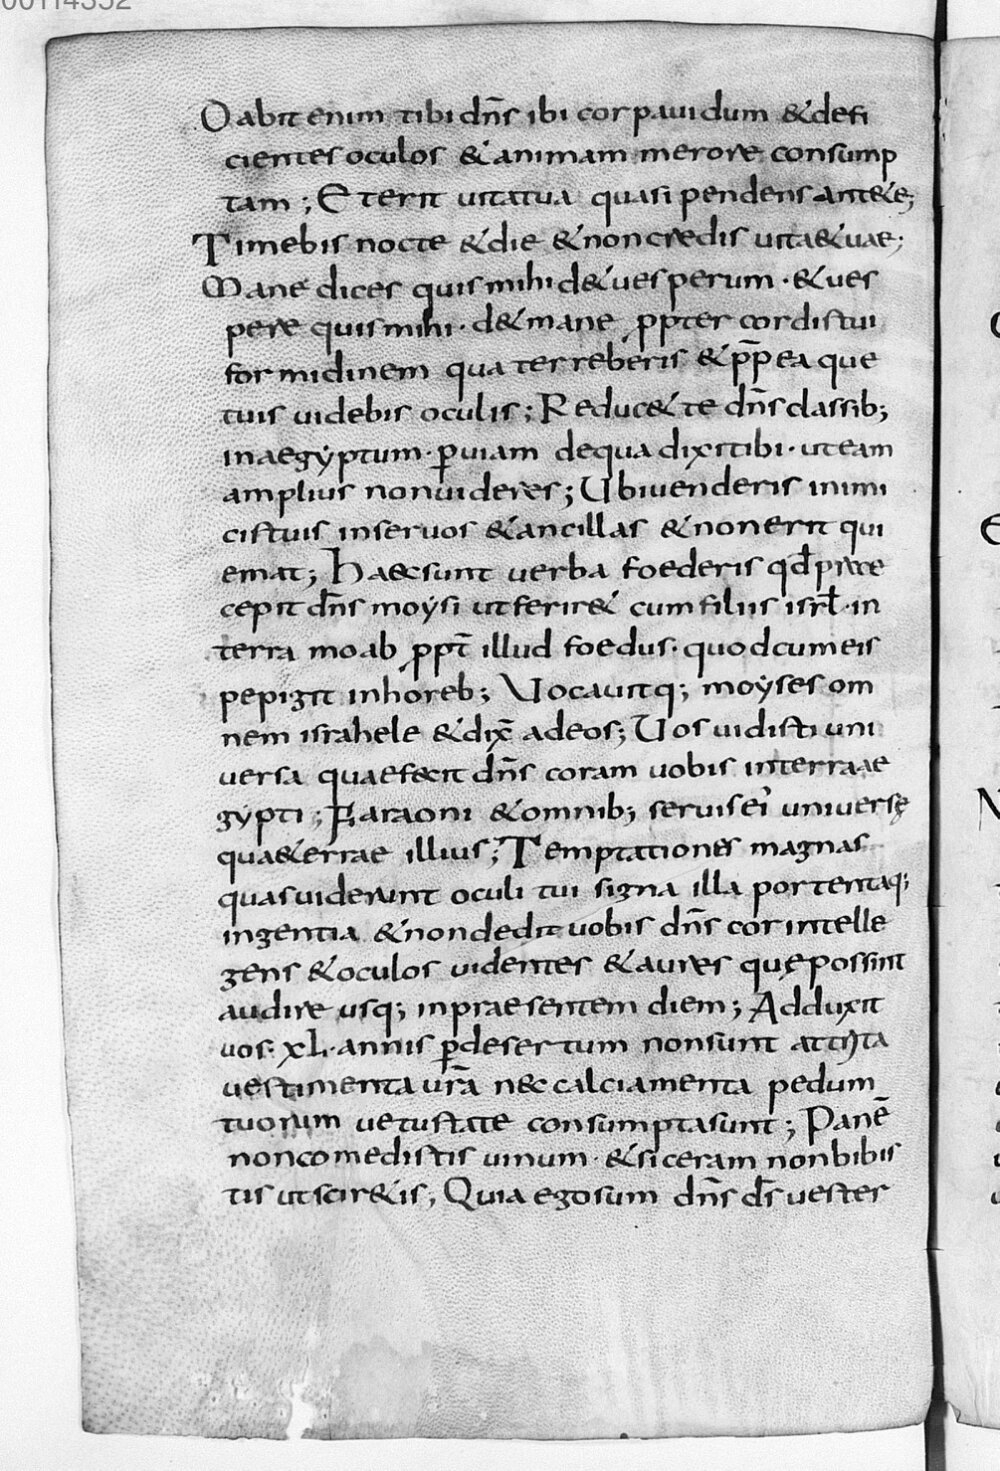 00114352
Dabit enim tibi dn̄s ibi cor pauidum & defi
cientes oculos & animam merore consump
tam; Et erit uita tua quasi pendens ante te;
Timebis nocte & die & non credis uitae tuae;
Mane dices quis mihi det uesperum · & ues
pere quis mihi · det mane ꝓpter cordis tui
formidinem qua terreberis & ꝓp ea que
tuis uidebis oculis; Reducet te dn̄s classib;
in aegẏptum · ꝑ uiam de qua dixit tibi · ut eam
amplius non uideres; Ubi uenderis inimi
cis tuis in seruos & ancillas & non erit qui
emat; Haec sunt uerba foederis qđ prae
cepit dn̄s moẏsi ut feriret cum filiis isrł · in
terra moab ꝓpt̄ illud foedus · quod cum eis
pepigit in horeb; Uocauitq; moẏses om
nem israhele & dix̄ ad eos; Uos uidisti uni
uersa quae fecit dn̄s coram uobis in terra ae
gẏpti; Faraoni & omnib; seruis ei uniuersę
quae terrae illius; Temptationes magnas
quas uiderunt oculi tui signa illa portentaq;
ingentia & non dedit uobis dn̄s cor intelle
gens & oculos uidentes & aures quę possint
audire usq; in praesentem diem; Adduxit
uos · xL · annis ꝑ desertum non sunt attrita
uestimenta ur̄a nec calciamenta pedum
tuorum uetustate consumpta sunt; Panē
non comedistis uinum · & siceram non bibis
tis ut sciretis; Quia ego sum dn̄s d̄s uester